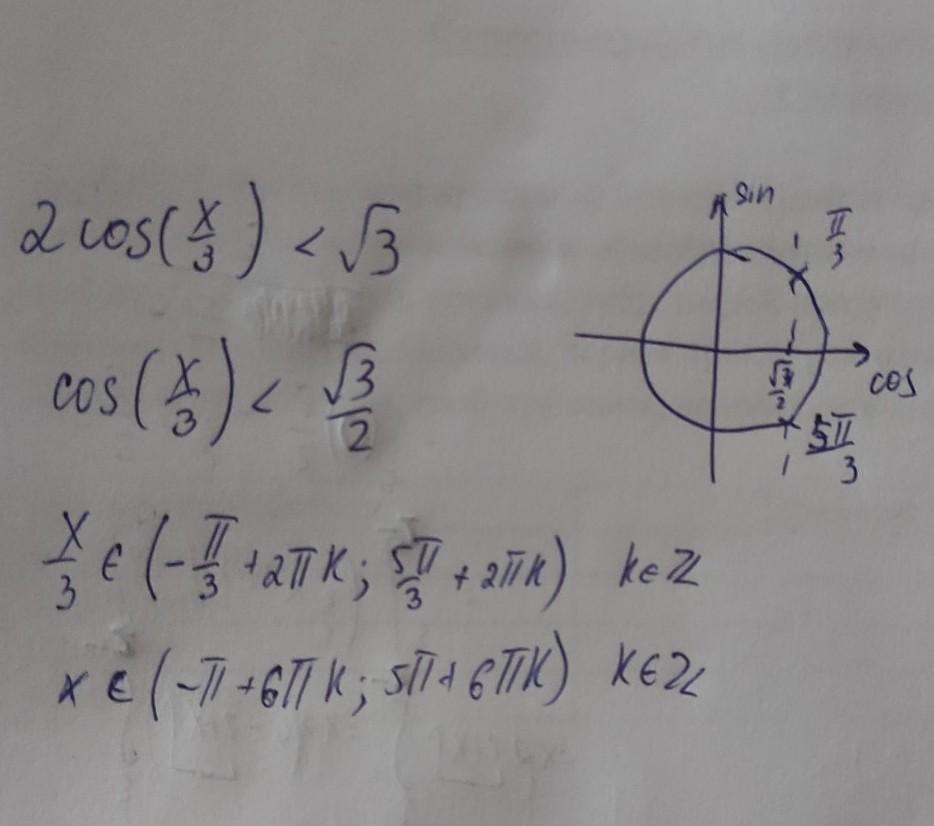 2 cos(x/3) < √3
cos(x/3) < √3/2
x/3 ∈ (-π/3 + 2πk; 5π/3 + 2πk) k∈Z
x ∈ (-π + 6πk; 5π + 6πk) k∈Z
sin
π/3
cos
√3/2
5π/3